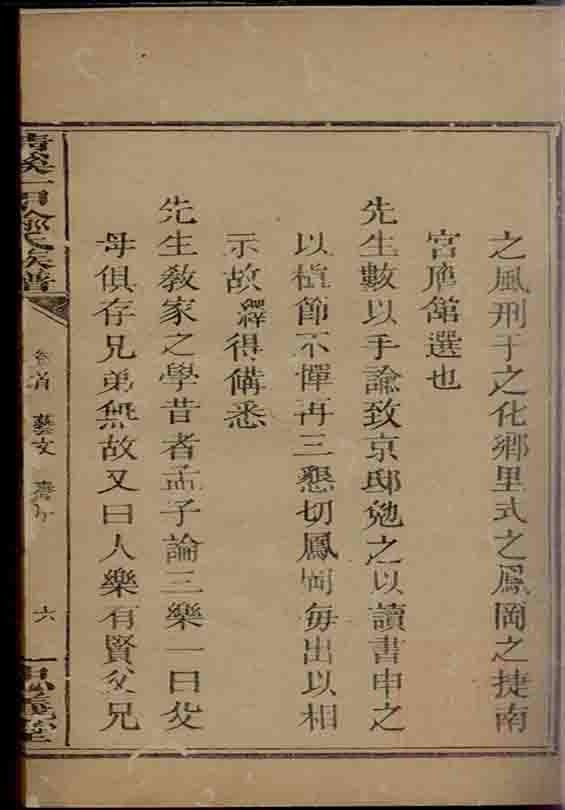 之風刑于之化鄉里式之鳳岡之捷南
宮膺館選也
先生數以手諭致京邸勉之以讀書申之
以植節不憚再三懇切鳳岡每出以相
示故繹得備悉
先生教家之學昔者孟子論三樂一曰父
母俱存兄弟無故又曰人樂有賢父兄
氏族譜
卷首 藝文 壽序
六